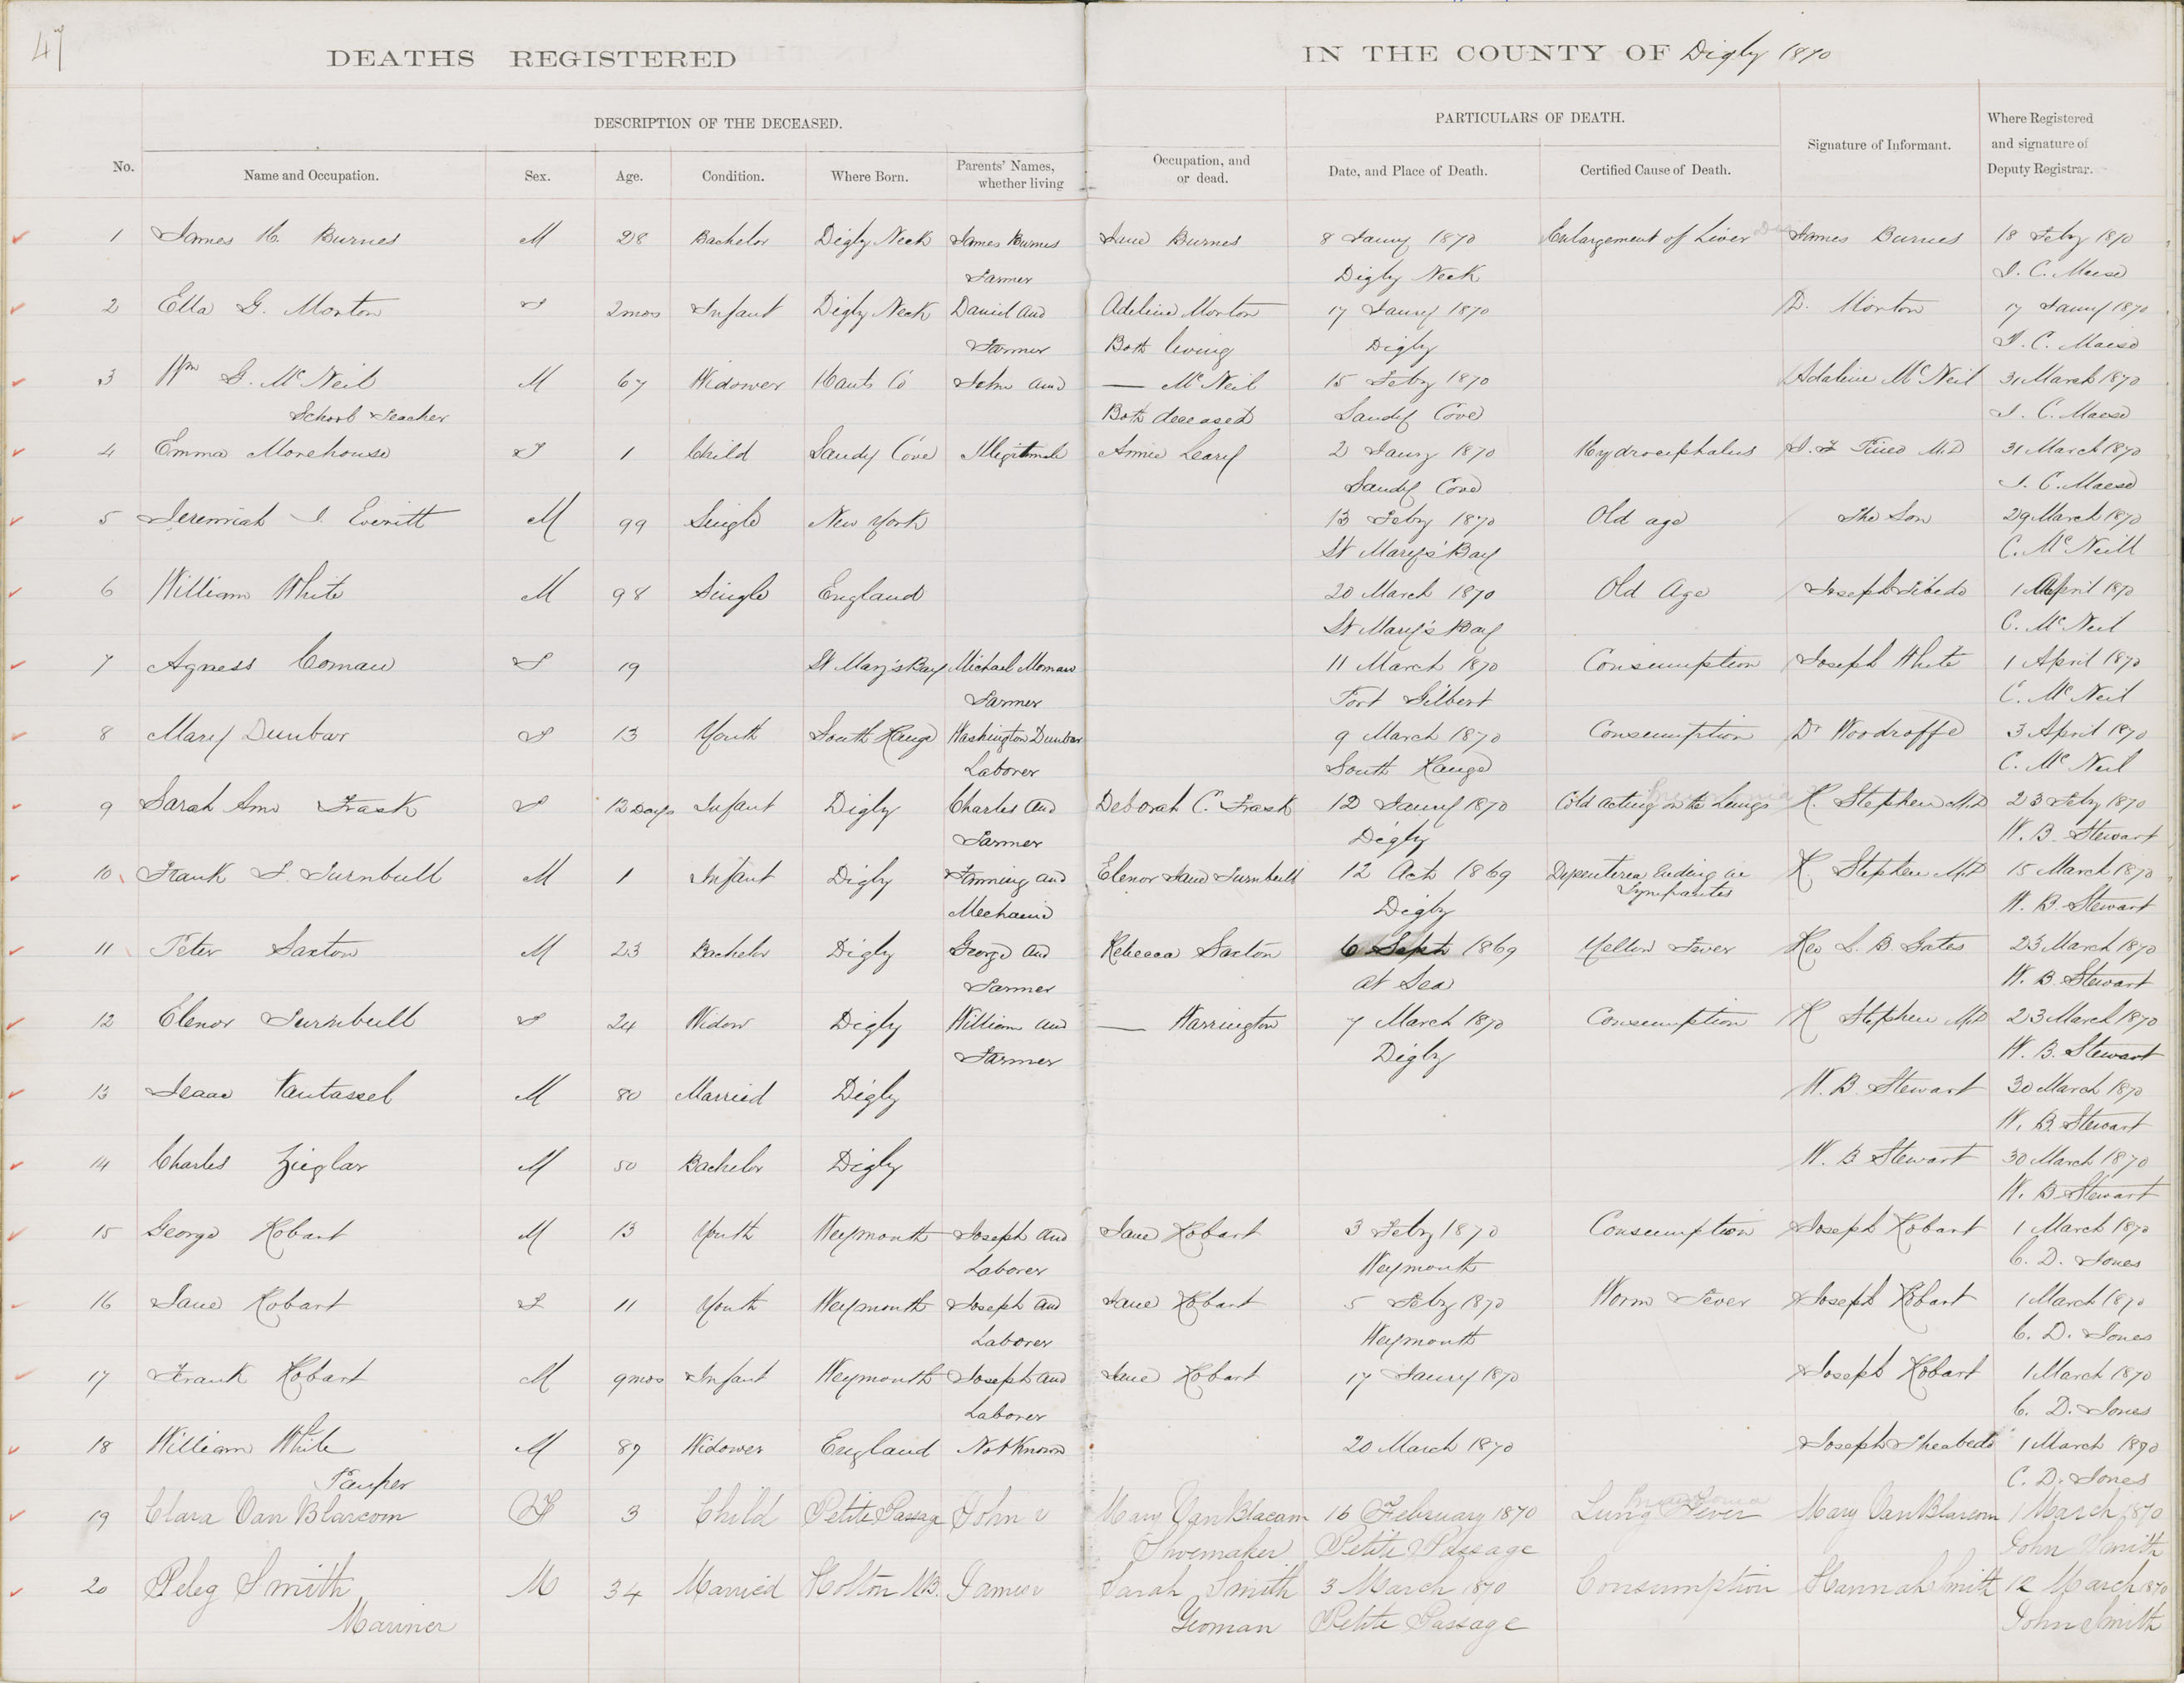 47
DEATHS REGISTERED IN THE COUNTY OF Digby 1870
DESCRIPTION OF THE DECEASED. PARTICULARS OF DEATH.
No. Name and Occupation. Sex. Age. Condition. Where Born. Parents' Names, whether living Occupation, and or dead. Date, and Place of Death. Certified Cause of Death. Signature of Informant. Where Registered and signature of Deputy Registrar.
1 James H. Burnes M 28 Bachelor Digby Neck James Burnes Jane Burnes 8 Jany 1870 Enlargement of Liver James Burnes 18 Feby 1870
Farmer Digby Neck J. C. Morse
2 Ella G. Morton F 2mos Infant Digby Neck Daniel and Adeline Morton 17 Jany 1870 D. Morton 17 Jany 1870
Farmer Both living Digby J. C. Morse
3 Wm G. McNeil M 67 Widower Hants Co John and — McNeil 15 Feby 1870 Adaline McNeil 31 March 1870
School Teacher Both deceased Sandy Cove J. C. Morse
4 Emma Morehouse F 1 Child Sandy Cove Illegitimate Annie Leary 2 Jany 1870 Hydrocephalus MD 31 March 1870
Sandy Cove J. C. Morse
5 Jeremiah J. Everitt M 99 Single New York 13 Feby 1870 Old age The Son 29 March 1870
St Mary's Bay C. McNeill
6 William White M 98 Single England 20 March 1870 Old Age Joseph Tibedo 1 April 1870
St Mary's Bay C. McNeil
7 Agness Comau F 19 St Mary's Bay Michael Momau 11 March 1870 Consumption Joseph White 1 April 1870
Farmer Port Gilbert C. McNeil
8 Mary Dunbar F 13 Youth South Range Washington Dunbar 9 March 1870 Consumption Dr Woodroffe 3 April 1870
Laborer South Range C. McNeil
9 Sarah Ann Trask F 12 Days Infant Digby Charles and Deborah C. Trask 12 Jany 1870 Cold acting on the Lungs R. Stephen M.D 23 Feby 1870
Farmer Digby W. B. Stewart
10 Frank F. Turnbull M 1 Infant Digby Fanning and Elenor Jane Turnbull 12 Oct 1869 Dysenterea Ending in R. Stephen M.D 15 March 1870
Mechanic Digby W. B. Stewart
11 Peter Saxton M 23 Bachelor Digby George and Rebecca Saxton 6 Sept 1869 Yellow Fever Rev L. B. Gates 23 March 1870
Farmer at Sea W. B. Stewart
12 Elenor Turnbull F 24 Widow Digby William and — Warrington 7 March 1870 Consumption R Stephen M.D 23 March 1870
Farmer Digby W. B. Stewart
13 Isaac Vantassel M 80 Married Digby W. B. Stewart 30 March 1870
W. B. Stewart
14 Charles Zieglar M 50 Bachelor Digby W. B Stewart 30 March 1870
W. B. Stewart
15 George Hobart M 13 Youth Weymouth Joseph and Jane Hobart 3 Feby 1870 Consumption Joseph Hobart 1 March 1870
Laborer Weymouth C. D. Jones
16 Jane Hobart F 11 Youth Weymouth Joseph and Jane Hobart 5 Feby 1870 Worm Fever Joseph Hobart 1 March 1870
Laborer Weymouth C. D. Jones
17 Frank Hobart M 9mos Infant Weymouth Joseph and Jane Hobart 17 Jany 1870 Joseph Hobart 1 March 1870
Laborer C. D. Jones
18 William White M 87 Widower England Not Known 20 March 1870 Joseph Theabedo 1 March 1870
Pauper C. D. Jones
19 Clara Van Blarcom F 3 Child Petite Passage John & Mary Van Blacam 16 February 1870 Lung Fever Mary Van Blarcom 1 March 1870
Shoemaker Petite Passage John Smith
20 Peleg Smith M 34 Married Holton NB. James & Sarah Smith 3 March 1870 Consumption Hannah Smith 12 March 1870
Mariner Yeoman Petite Passage John Smith